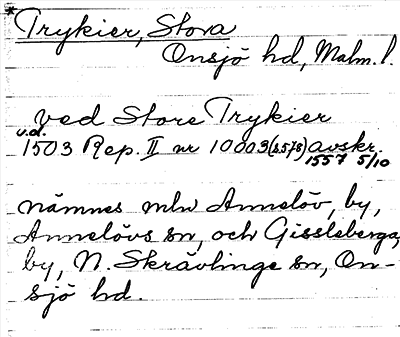 *Trykier, Stora
Onsjö hd, Malm. l.
ved Store Trykier
u.d.
1503 Rep. II nr 10003 (s 578) avskr.
1557 5/10
nämnes mln Annelöv, by,
Annelövs sn, och Gissleberga,
by, N. Skrävlinge sn, On-
sjö hd.